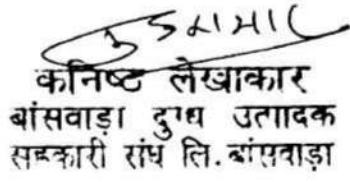 कनिष्ट लेखाकार
बांसवाड़ा दुग्ध उत्पादक
सहकारी संघ लि. बांसवाड़ा